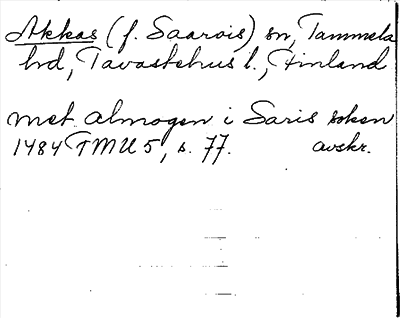 Akkas (f. Saarois) sn, Tammela
hrd, Tavastehus l., Finland
met. almogen i Saris soken
1484 TMU 5, s. 77. avskr.